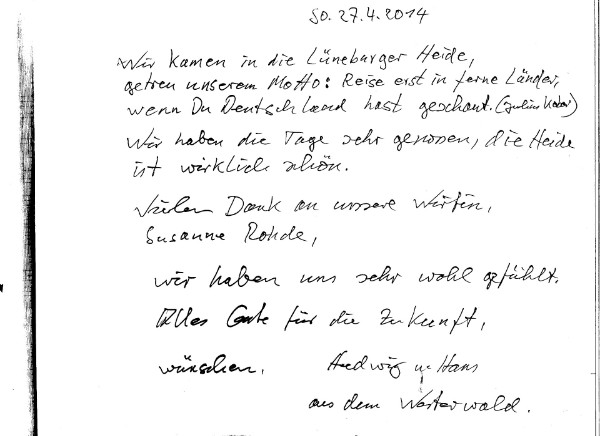 So. 27.4.2014
Wir kamen in die Lüneburger Heide,
getreu unserem Motto: Reise erst in ferne Länder,
wenn Du Deutschland hast geschaut.
Wir haben die Tage sehr genossen, die Heide
ist wirklich schön.
Vielen Dank an unsere Wirtin,
Susanne Rohde,
wir haben uns sehr wohl gefühlt.
Alles Gute für die Zukunft,
wünschen, Hedwig u. Hans
aus dem Westerwald.